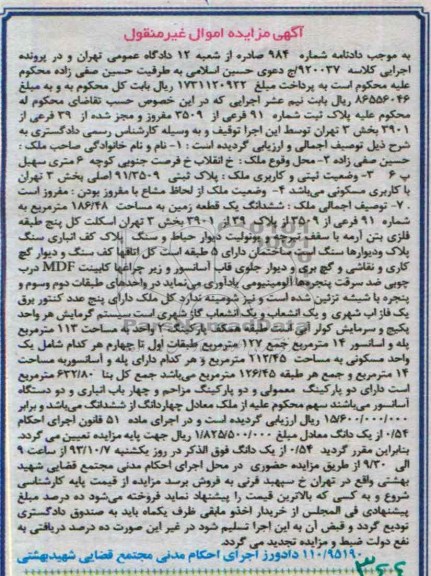 آگهی مزایده اموال غیرمنقول
به موجب دادنامه شماره ۹۸۴ صادره از شعبه ۱۲ دادگاه عمومی تهران و در پرونده
اجرایی کلاسه ۹۲۰۰۳۷/ج دعوی حسین اسلامی به طرفیت حسین صفی زاده محکوم
علیه محکوم است به پرداخت مبلغ ۱۷۳۱۱۲۰۹۲۲ ریال بابت کل محکوم به و به مبلغ
۸۶۵۵۶۰۴۶ ریال بابت نیم عشر اجرایی که در این خصوص حسب تقاضای محکوم له
محکوم علیه پلاک ثبت شماره ۹۱ فرعی از ۳۵۰۹ مفروز و مجز شده از ۳۹ فرعی از
۳۹۰۱ بخش ۳ تهران توسط این اجرا توقیف و به وسیله کارشناس رسمی دادگستری به
شرح ذیل توصیف اجمالی و ارزیابی گردیده است : ۱- نام و نام خانوادگی صاحب ملک :
حسین صفی زاده ۲- محل وقوع ملک : خ انقلاب خ فرصت جنوبی کوچه ۶ متری سهیل
پ ۶ ۳- وضعیت ثبتی و کاربری ملک : پلاک ثبتی ۹۱/۳۵۰۹ اصلی بخش ۳ تهران
با کاربری مسکونی می‌باشد ۴- وضعیت ملک از لحاظ مشاع یا مفروز بودن : مفروز است
۷- توصیف اجمالی ملک : ششدانگ یک قطعه زمین به مساحت ۱۸۶/۴۸ مترمربع به
شماره ۹۱ فرعی از ۳۵۰۹ از پلاک ۳۹ از ۳۹۰۱ بخش ۳ تهران اسکلت کل پنج طبقه
فلزی بتن آرمه با سقف تیرچه و یونولیت دیوار حیاط و سنگ پلاک کف انباری سنگ
پلاک ودیوارها سنگ است ساختمان دارای ۵ طبقه است کل اتاقها کف سنگ و دیوار گچ
کاری و نقاشی و گچ بری و دیوار جلوی قاب آسانسور و زیر چراغها کابینت MDF درب
چوبی ضد سرقت پنجره‌ها آلومینیومی یادآوری می نماید در واحدهای طبقات دوم وسوم و
پنجره با شیشه تزئین شده است و نیز شومینه ندارد کل ملک دارای پنج عدد کنتور برق
یک فاز اب شهری و یک انشعاب و یک انشعاب گاز شهری است سیستم گرمایش هر واحد
پکیج و سرمایش کولر آبی طبقه همکف پارکینگ ۴ واحد به مساحت ۱۱۳ مترمربع
پله و آسانسور ۱۴ مترمربع جمع ۱۲۷ مترمربع طبقات اول تا چهارم هر کدام شامل یک
واحد مسکونی به مساحت ۲۱۲/۴۵ مترمربع و هر کدام دارای پله و آسانسوربه مساحت
۱۴ مترمربع و جمع هر طبقه ۱۲۶/۴۵ مترمربع می‌باشد جمع کل بنا ۶۳۲/۸۰ مترمربع
است دارای دو پارکینگ معمولی و دو پارکینگ مزاحم و چهار باب انباری و دو دستگاه
آسانسور می‌باشند سهم محکوم علیه از ملک معادل چهاردانگ از ششدانگ می‌باشد و برابر
۱۵/۶۰۰/۰۰۰/۰۰۰ ریال ارزیابی گردیده است و در اجرای ماده ۵۱ قانون اجرای احکام
۰/۵۴ از یک دانگ معادل مبلغ ۱/۸۲۵/۵۰۰/۰۰۰ ریال جهت پایه مزایده تعیین می گردد.
بنابراین مقرر گردید ۰/۵۴ از یک دانگ فوق الذکر در روز یکشنبه ۹۳/۱۰/۷ از ساعت ۹
الی ۹/۳۰ از طریق مزایده حضوری در محل اجرای احکام مدنی مجتمع قضایی شهید
بهشتی واقع در تهران خ سپهبد قرنی به فروش برسد مزایده از قیمت پایه کارشناسی
شروع و به کسی که بالاترین قیمت را پیشنهاد نماید فروخته می‌شود ده درصد مبلغ
پیشنهادی فی المجلس از خریدار اخذو مابقی ظرف یکماه باید به صندوق دادگستری
تودیع گردد و قبض آن به این اجرا تسلیم شود در غیر این صورت ده درصد دریافتی به
نفع دولت ضبط و مزایده تجدید می گردد.
۱۱۰/۹۵۱۹۰ دادورز اجرای احکام مدنی مجتمع قضایی شهیدبهشتی